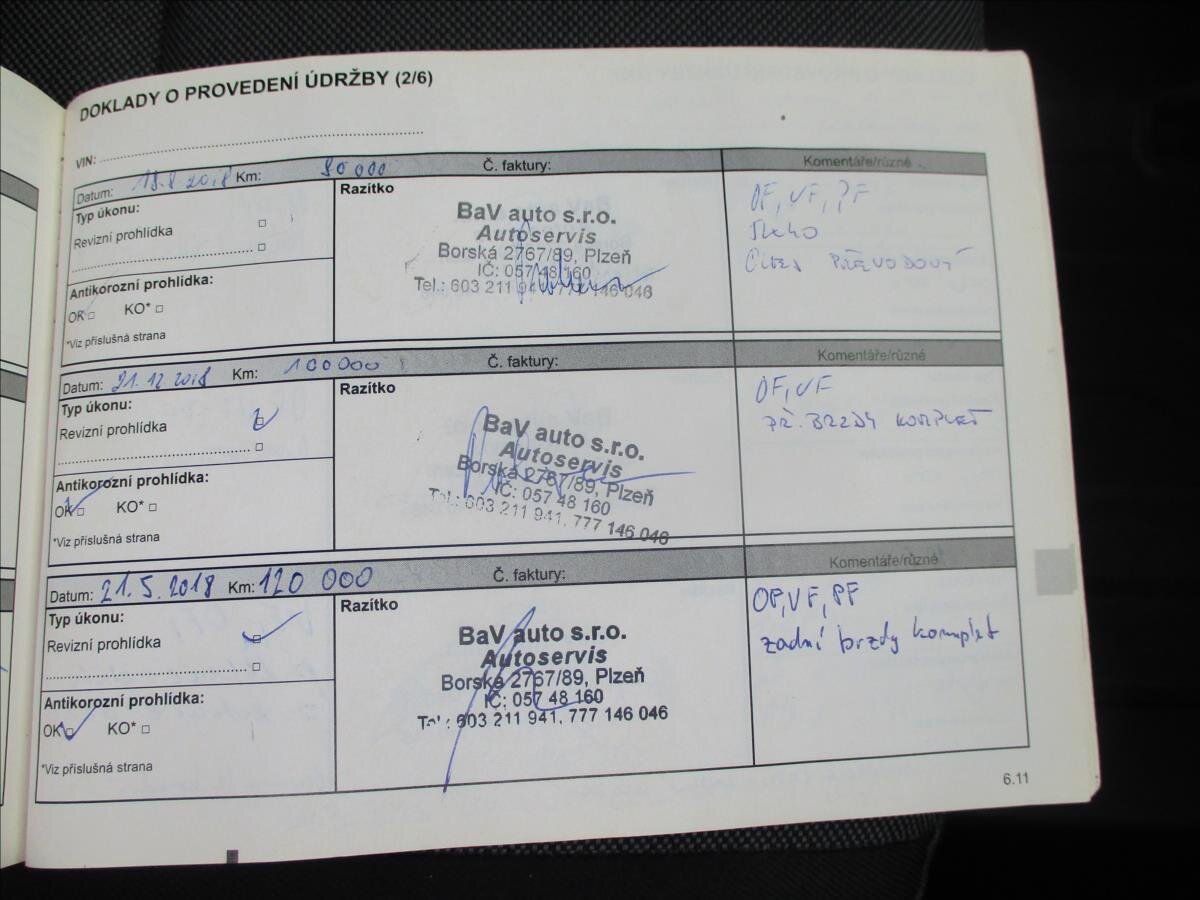 DOKLADY O PROVEDENÍ ÚDRŽBY (2/6)
VIN:
Datum: 18.8 2018 Km: 80 000 Č. faktury: Komentáře/různé
Typ úkonu:
Revizní prohlídka
Antikorozní prohlídka:
OK KO*
*Viz příslušná strana
Razítko
BaV auto s.r.o.
Autoservis
Borská 2767/89, Plzeň
IČ: 057 48 160
Tel.: 603 211 941, 777 146 046
OF, VF, PF
PŘEVODOVÝ
Datum: 21.12 2018 Km: 100000 Č. faktury: Komentáře/různé
Typ úkonu:
Revizní prohlídka
Antikorozní prohlídka:
OK KO*
*Viz příslušná strana
Razítko
BaV auto s.r.o.
Autoservis
Borská 2767/89, Plzeň
IČ: 057 48 160
Tel.: 603 211 941, 777 146 046
OF, VF
PŘ. BRZDY KOMPLET
Datum: 21.5.2018 Km: 120 000 Č. faktury: Komentáře/různé
Typ úkonu:
Revizní prohlídka
Antikorozní prohlídka:
OK KO*
*Viz příslušná strana
Razítko
BaV auto s.r.o.
Autoservis
Borská 2767/89, Plzeň
IČ: 057 48 160
Tel.: 603 211 941, 777 146 046
OP, VF, PF
zadní brzdy komplet
6.11